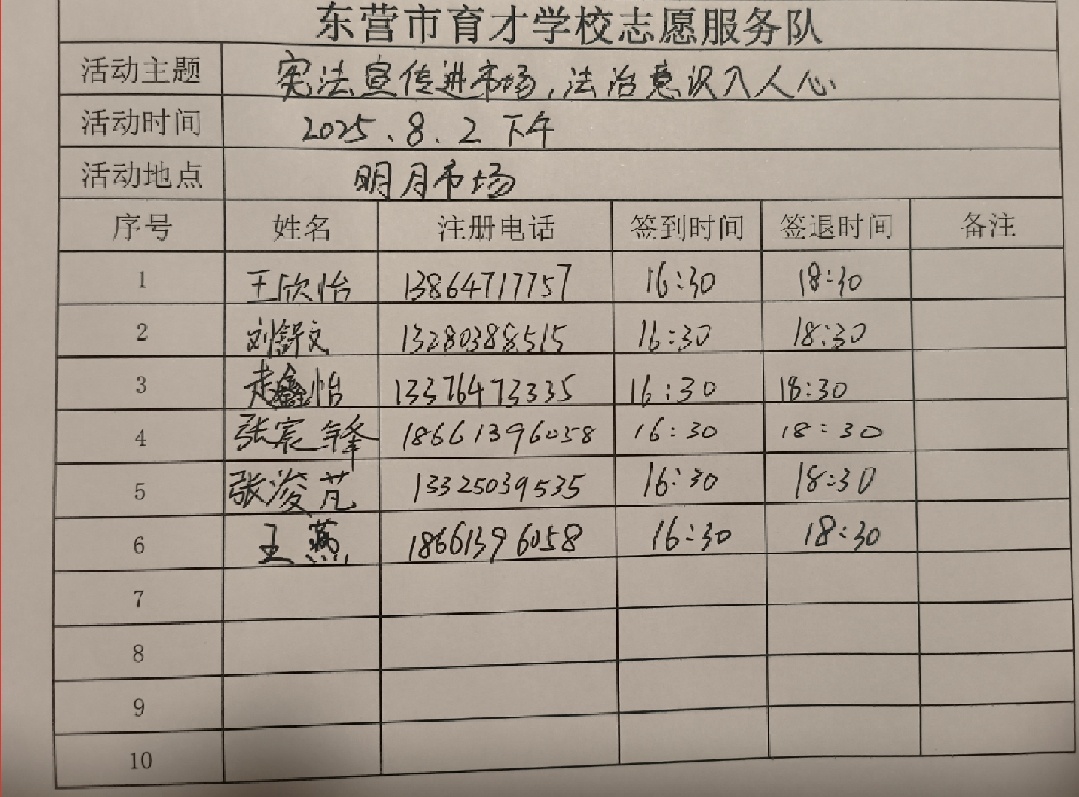 东营市育才学校志愿服务队
活动主题 宪法宣传进市场,法治意识入人心
活动时间 2025.8.2 下午
活动地点 明月市场
序号 姓名 注册电话 签到时间 签退时间 备注
1 王欣怡 13864717757 16:30 18:30
2 刘舒文 13280388515 16:30 18:30
3 走鑫怡 13376473335 16:30 18:30
4 张宸锋 18661396058 16:30 18:30
5 张浚芃 13325039535 16:30 18:30
6 王燕 18661396058 16:30 18:30
7
8
9
10